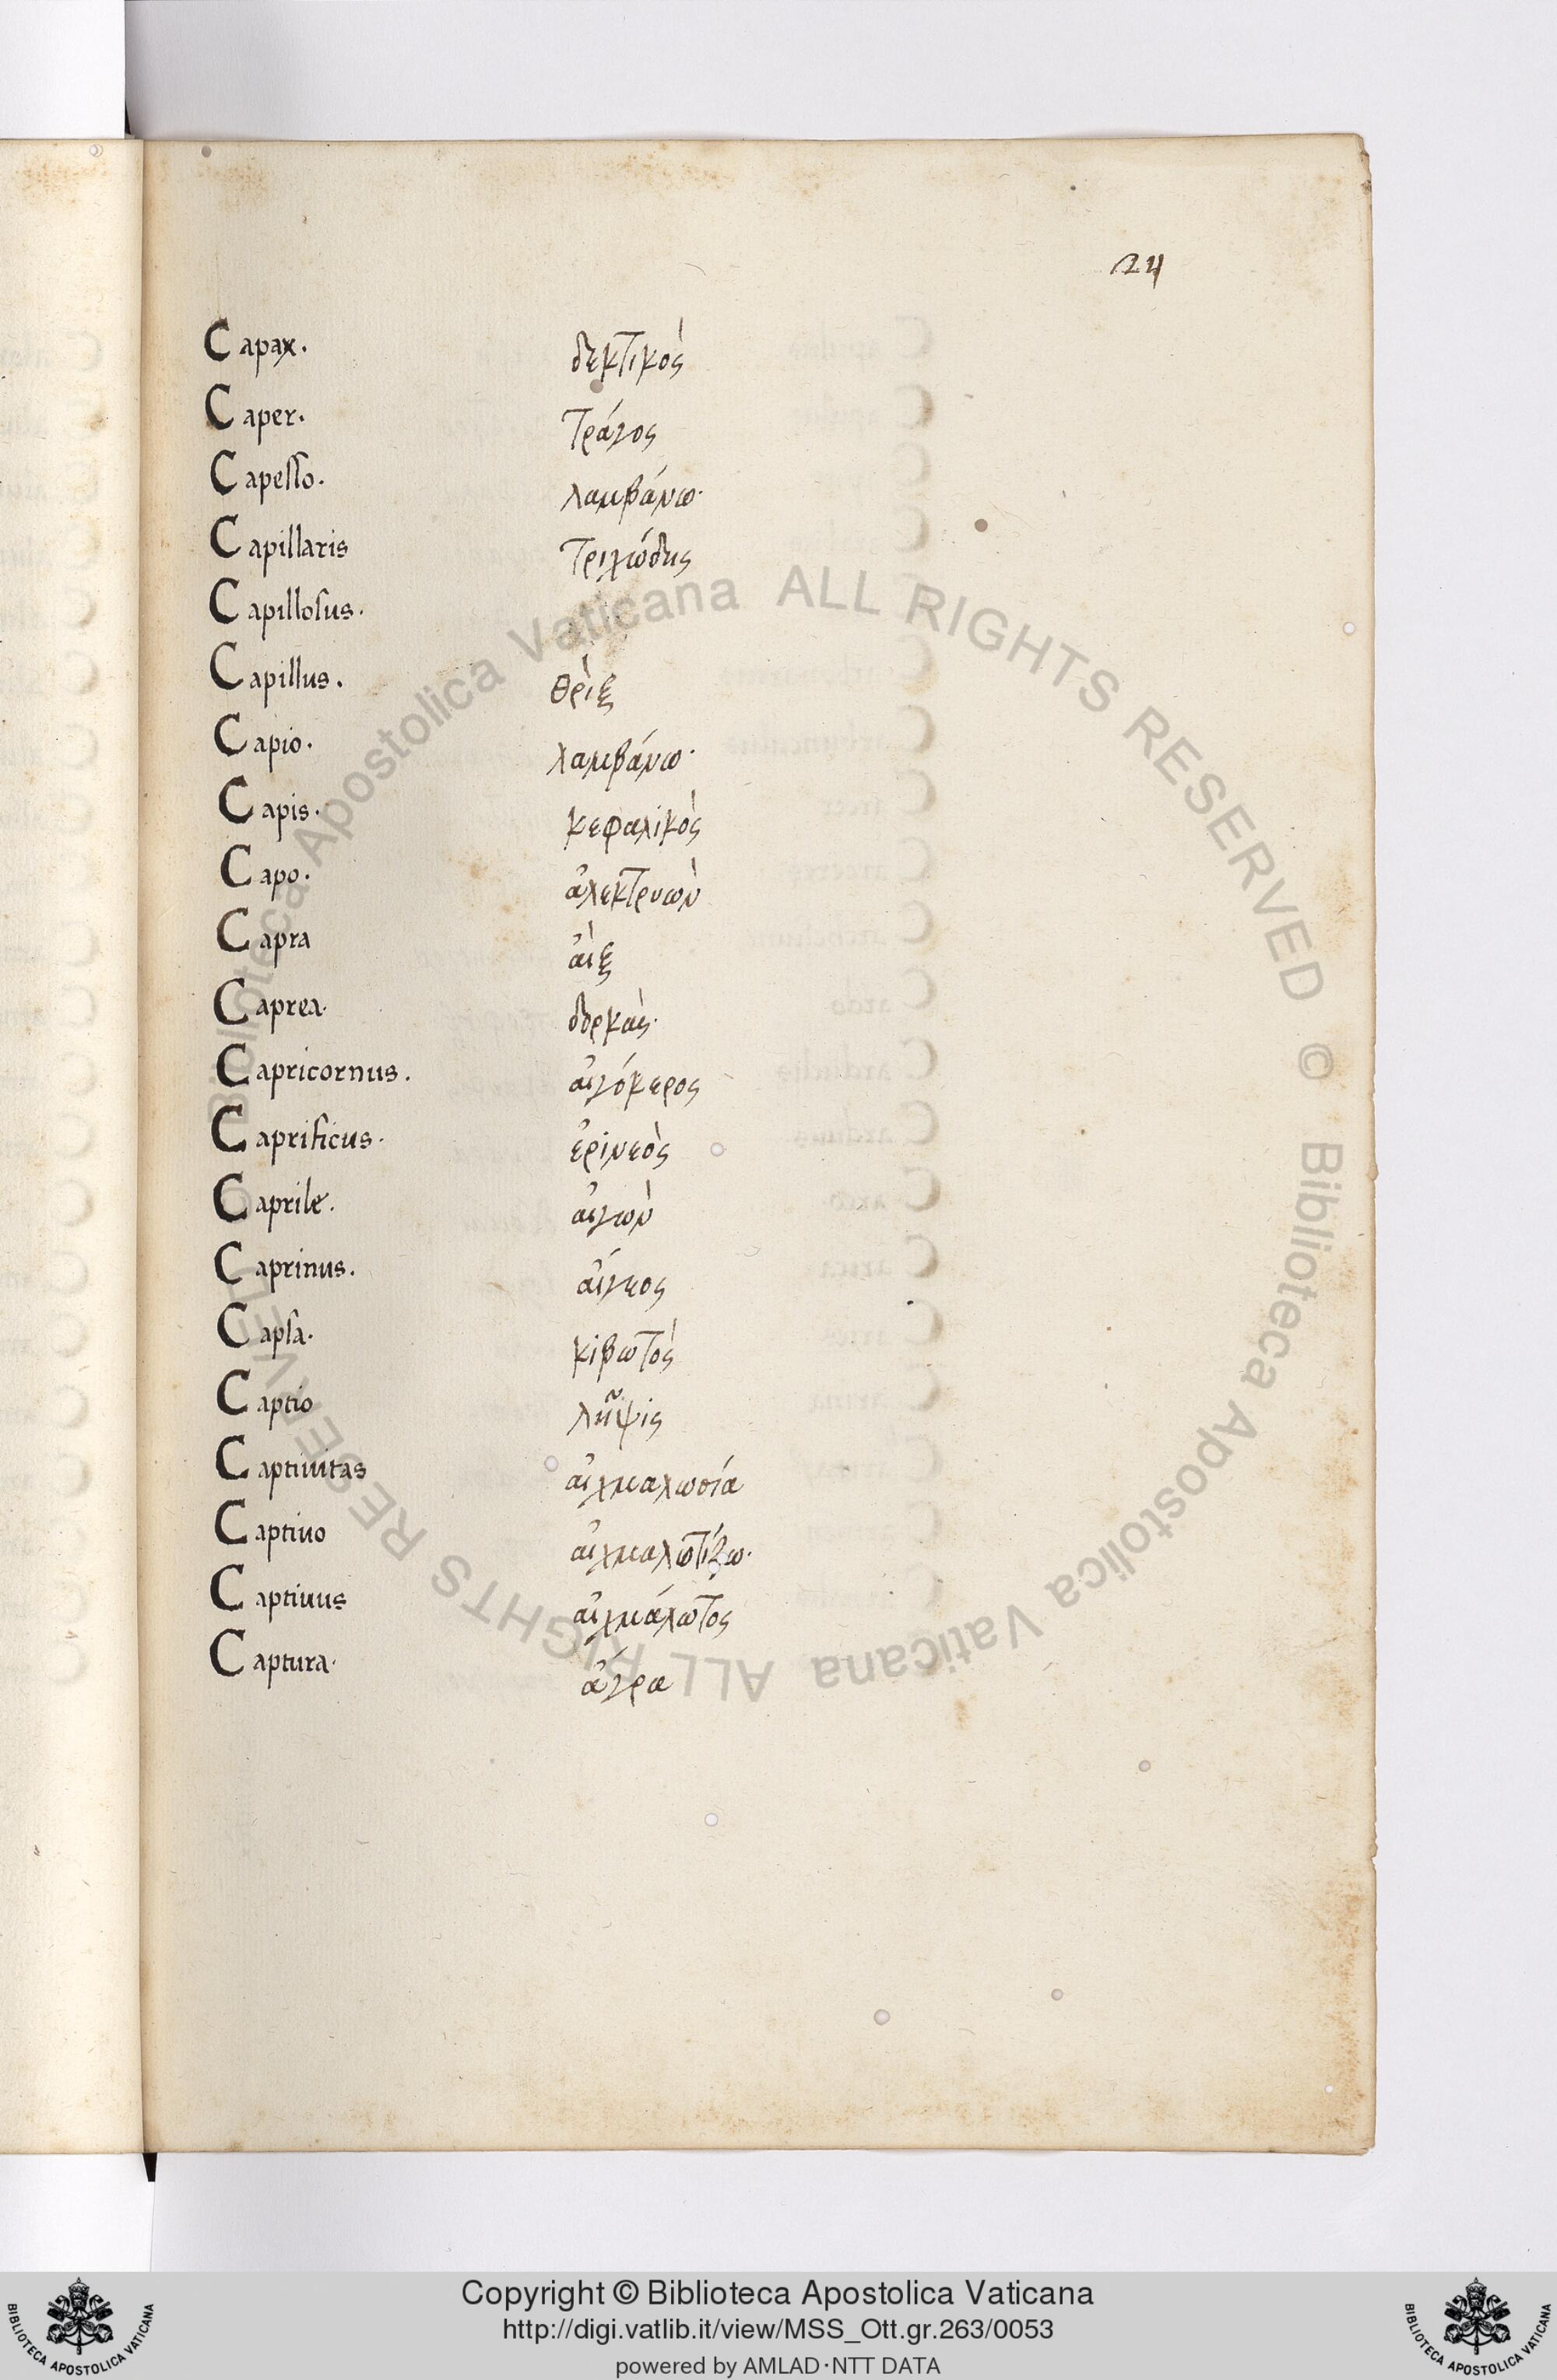 24
Capax. δεκτικὸς
Caper. τράγος
Capesso. λαμβάνω.
Capillaris τριχώδης
Capillosus.
Capillus. θρὶξ
Capio. λαμβάνω.
Capis. κεφαλικὸς
Capo. ἀλεκτρυὼν
Capra ἀὶξ
Caprea. δορκὰς.
Capricornus. αἰγόκερος
Caprificus. ἐρινεὸς
Caprile. αἰγὼν
Caprinus. αἴγεος
Capsa. κιβωτὸς
Captio λῆψις
Captiuitas αἰχμαλωσία
Captiuo αἰχμαλωτίζω.
Captiuus αἰχμάλωτος
Captura. ἄγρα
Biblioteca Apostolica Vaticana ALL RIGHTS RESERVED ©
Biblioteca Apostolica Vaticana ALL RIGHTS RESERVED ©
Copyright © Biblioteca Apostolica Vaticana
http://digi.vatlib.it/view/MSS_Ott.gr.263/0053
powered by AMLAD·NTT DATA
BIBLIOTECA APOSTOLICA VATICANA
BIBLIOTECA APOSTOLICA VATICANA